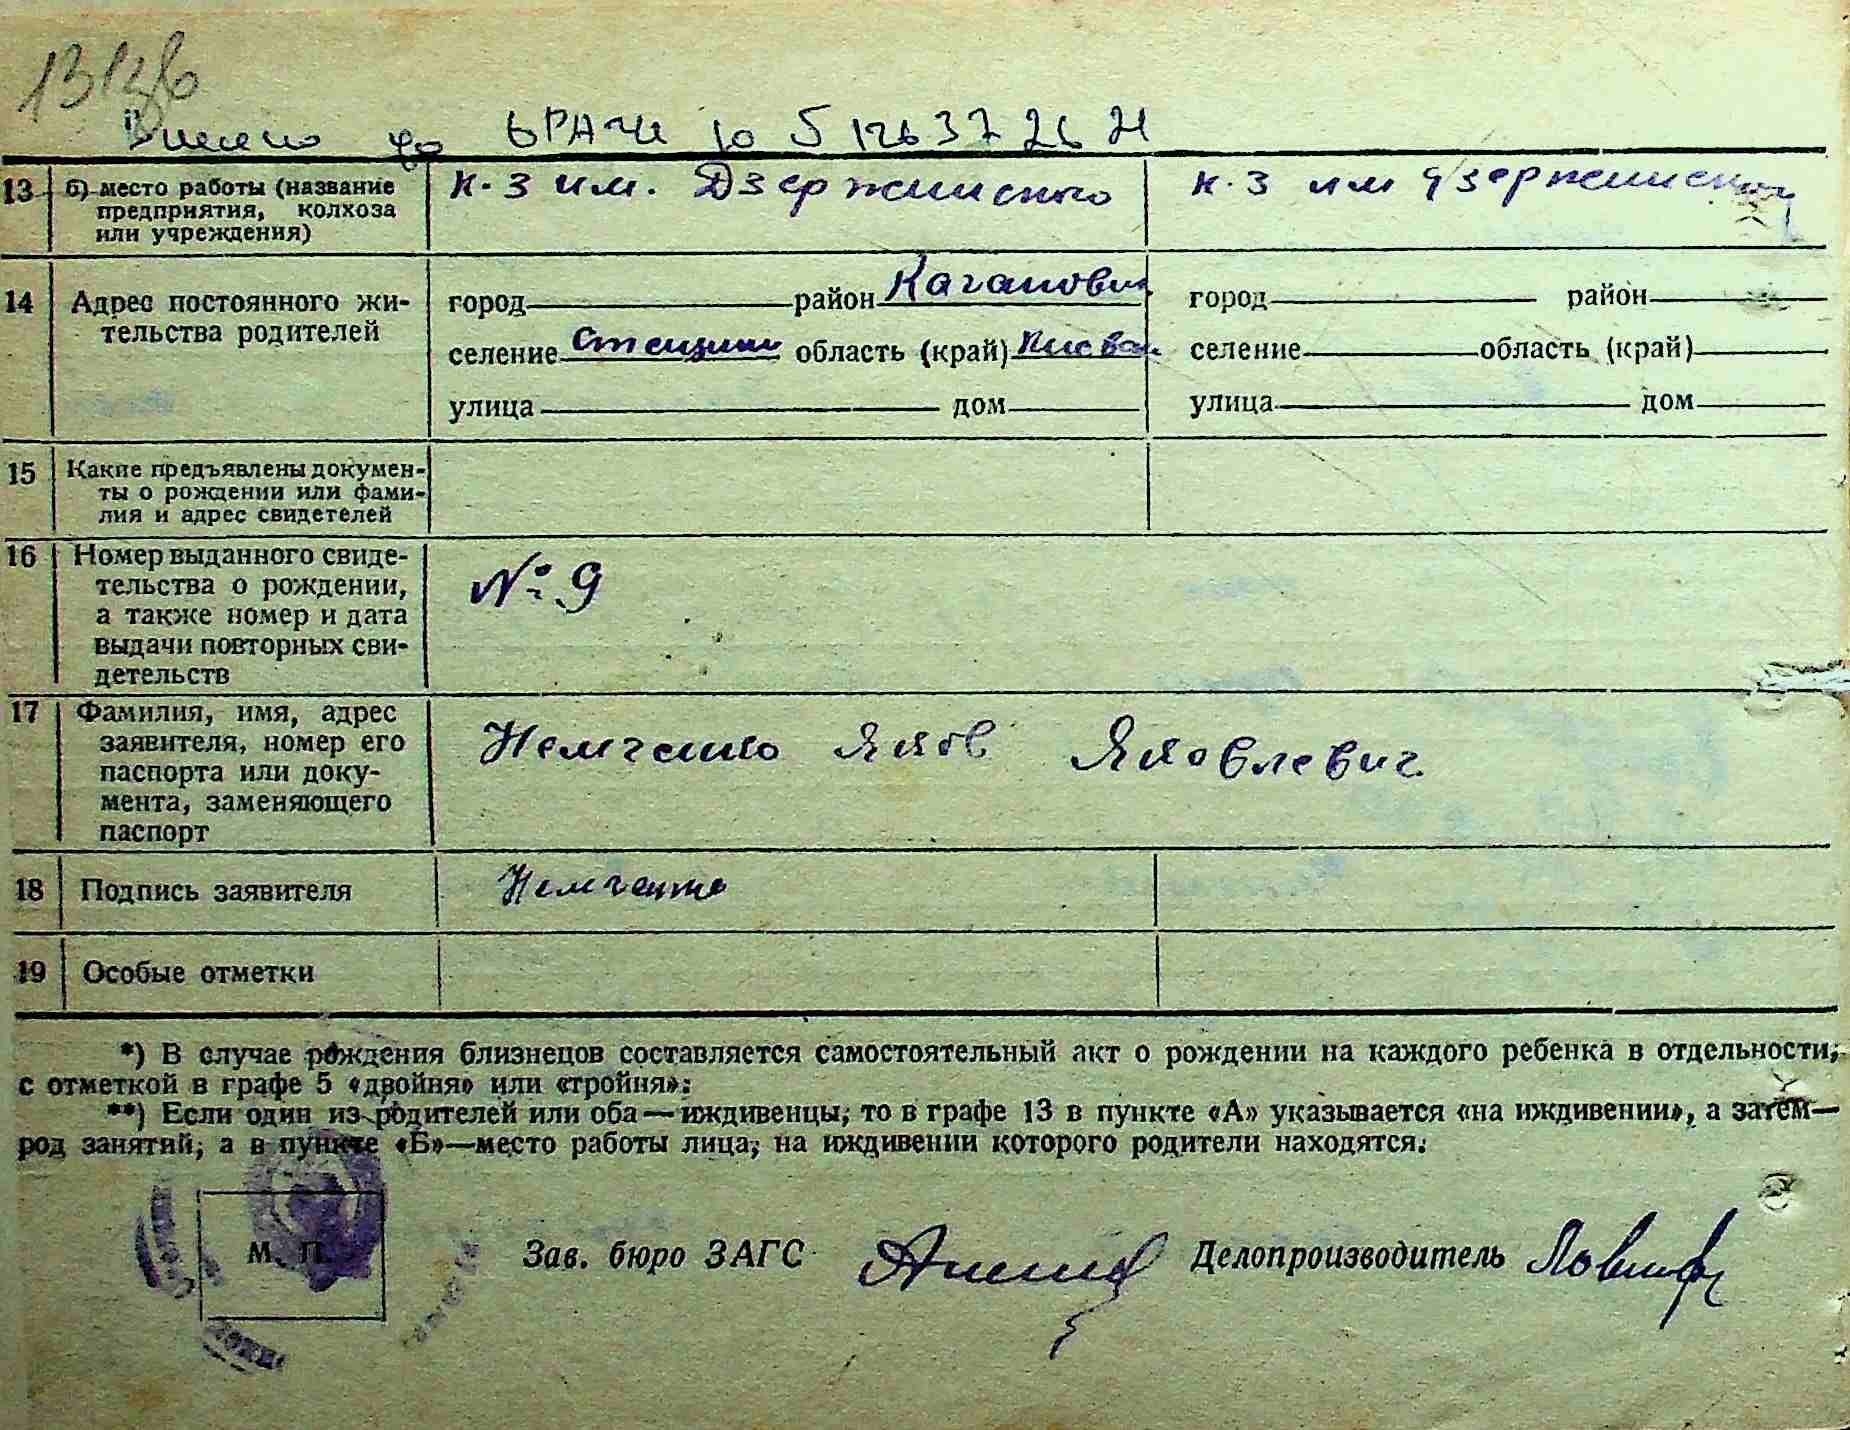 13
13 б) место работы (название предприятия, колхоза или учреждения) к-з им. Дзержинского к-з им Дзержинского
14 Адрес постоянного жи-
тельства родителей
город район Каганович город район
селение Стещина область (край) Киевск селение область (край)
улица дом улица дом
15 Какие предъявлены докумен-
ты о рождении или фами-
лия и адрес свидетелей
16 Номер выданного свиде-
тельства о рождении,
а также номер и дата
выдачи повторных сви-
детельств
№ 9
17 Фамилия, имя, адрес
заявителя, номер его
паспорта или доку-
мента, заменяющего
паспорт
Немченко Яков Яковлевич
18 Подпись заявителя Немченко
19 Особые отметки
*) В случае рождения близнецов составляется самостоятельный акт о рождении на каждого ребенка в отдельности,
с отметкой в графе 5 «двойня» или «тройня».
**) Если один из родителей или оба — иждивенцы, то в графе 13 в пункте «А» указывается «на иждивении», а затем—
род занятий, а в пункте «Б»—место работы лица, на иждивении которого родители находятся.
М. П. Зав. бюро ЗАГС Делопроизводитель